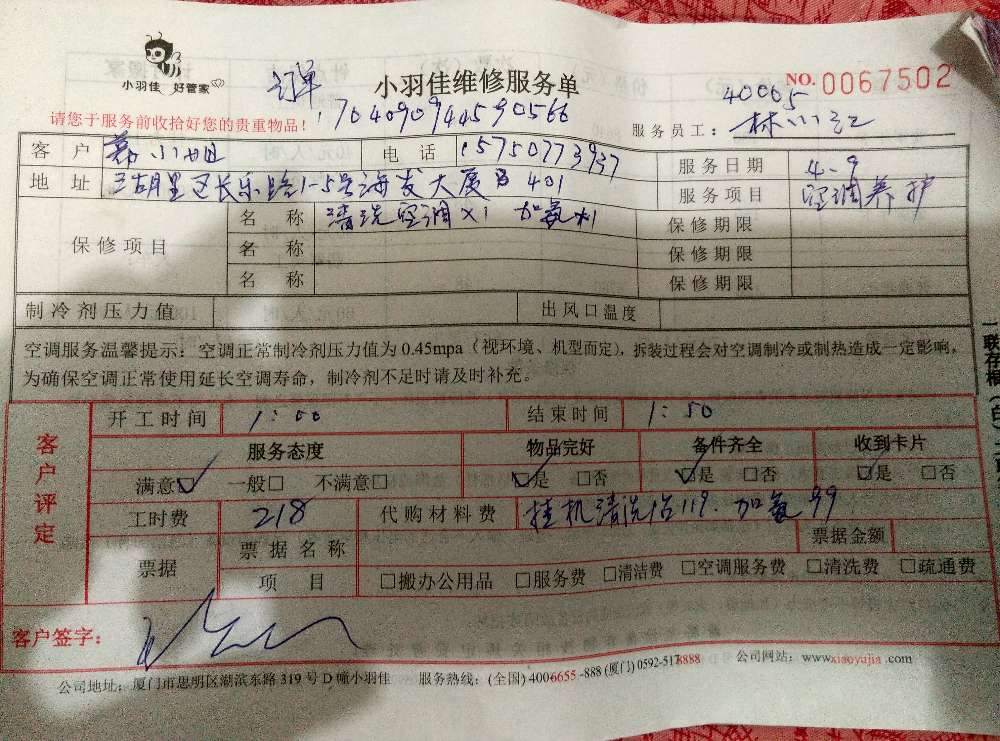 小羽佳 好管家
订单 小羽佳维修服务单
NO. 0067502
170409094
590566
40065
请您于服务前收拾好您的贵重物品！
服务员工：林小红
客户 小姐 电话 15750773937 服务日期 4-9
地址 湖里区长乐路1-5号海发大厦B 401 服务项目 空调养护
保修项目 名称 清洗空调x1 加氟x1 保修期限
名称 保修期限
名称 保修期限
制冷剂压力值 出风口温度
空调服务温馨提示：空调正常制冷剂压力值为0.45mpa（视环境、机型而定），拆装过程会对空调制冷或制热造成一定影响，
为确保空调正常使用延长空调寿命，制冷剂不足时请及时补充。
客户评定
开工时间 1:00 结束时间 1:50
服务态度 物品完好 备件齐全 收到卡片
满意☑ 一般□ 不满意□ ☑是 □否 ☑是 □否 ☑是 □否
工时费 218 代购材料费 挂机清洗 119. 加氟99
票据 票据名称 票据金额
项目 □搬办公用品 □服务费 □清洁费 □空调服务费 □清洗费 □疏通费
客户签字：
公司地址：厦门市思明区湖滨东路319号D幢小羽佳 服务热线：(全国) 4006655-888 (厦门) 0592-5178888 公司网站：www.xiaoyujia.com